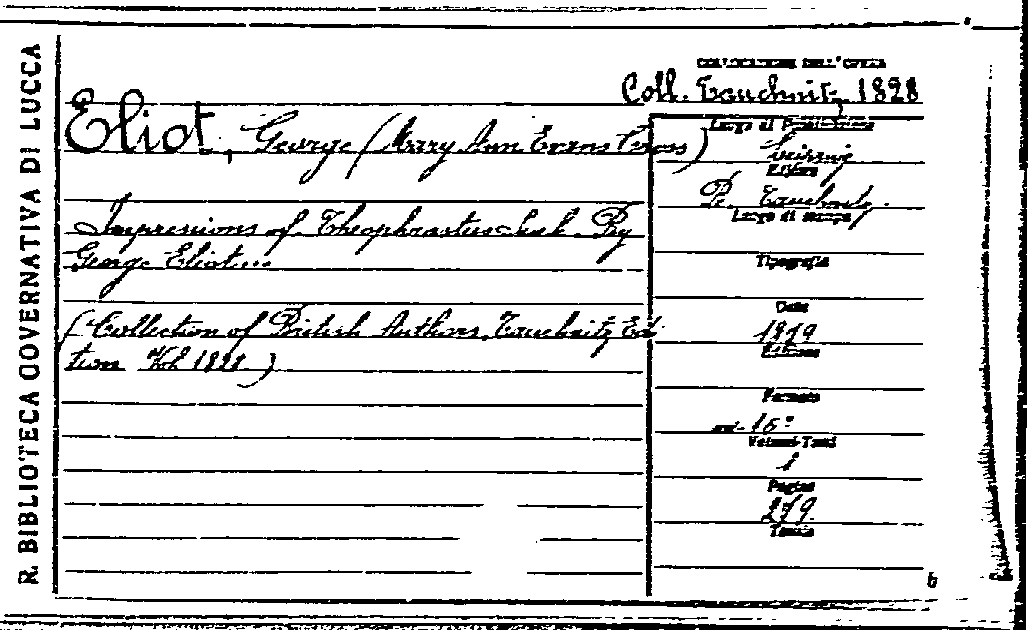 R. BIBLIOTECA GOVERNATIVA DI LUCCA
COLLOCAZIONE DELL'OPERA
Coll. Tauchnitz 1828
Eliot, George (Mary Ann Evans Cross)
Impressions of Theophrastus Such. By
George Eliot...
(Collection of British Authors, Tauchnitz Edi-
tion Vol. 1828.)
Luogo di Pubblicazione
Editore
B. Tauchnitz.
Luogo di stampa
Tipografia
Data
1879
Edizione
Formato
in-16°
Volumi-Tomi
1
Pagine
279.
Tavole
6